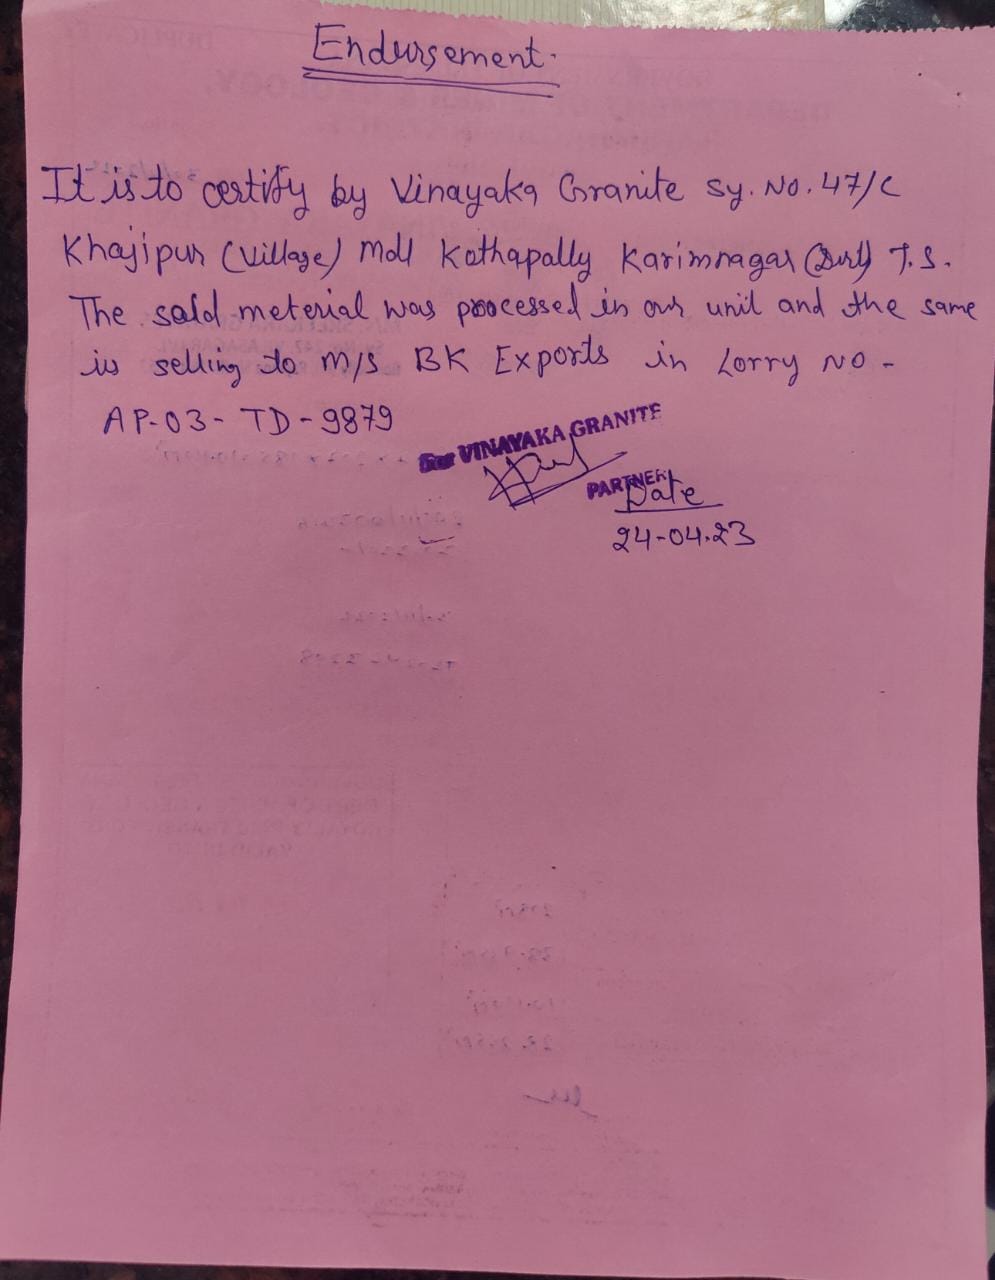 Endursement.
It is to certify by Vinayaka Granite Sy. No. 47/C
Khajipur (Village) Mdl Kothapally Karimnagar (Dist) T.S.
The sald meterial was processed in our unit and the same
is selling to M/S BK Exports in Lorry NO -
AP-03- TD-9879
For VINAYAKA GRANITE
PARTNER
Date
24-04.23